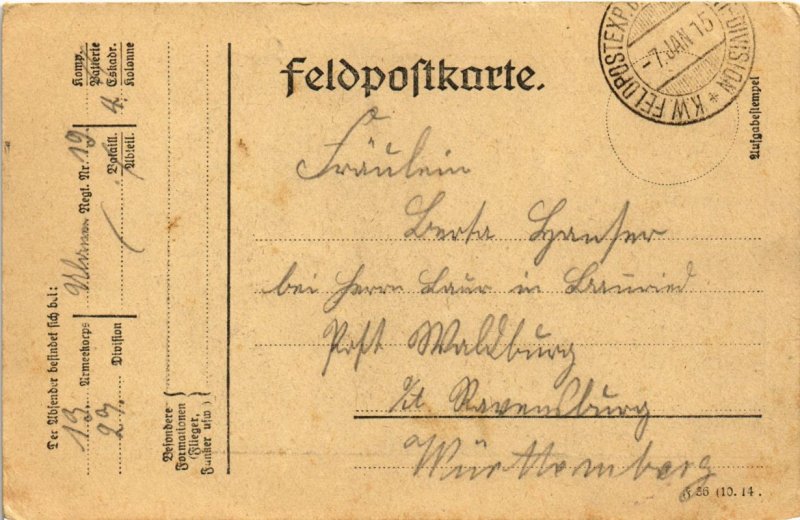 Feldpostkarte.
K.W. FELDPOSTEXP. DIVISION *
-7.JAN 15
Aufgabestempel
Fräulein
Berta Hanser
bei Herrn Laur in
Post Waldburg
Ravensburg
Württemberg
F 36 (10. 14.
Der Absender befindet sich bei:
13. Armeekorps Ulanen Regt. Nr. 19. Komp.
27. Division Bataill. 4. Batterie
Abteil. Eskadr.
Kolonne
Besondere
Formationen
(Flieger,
Funker usw.)